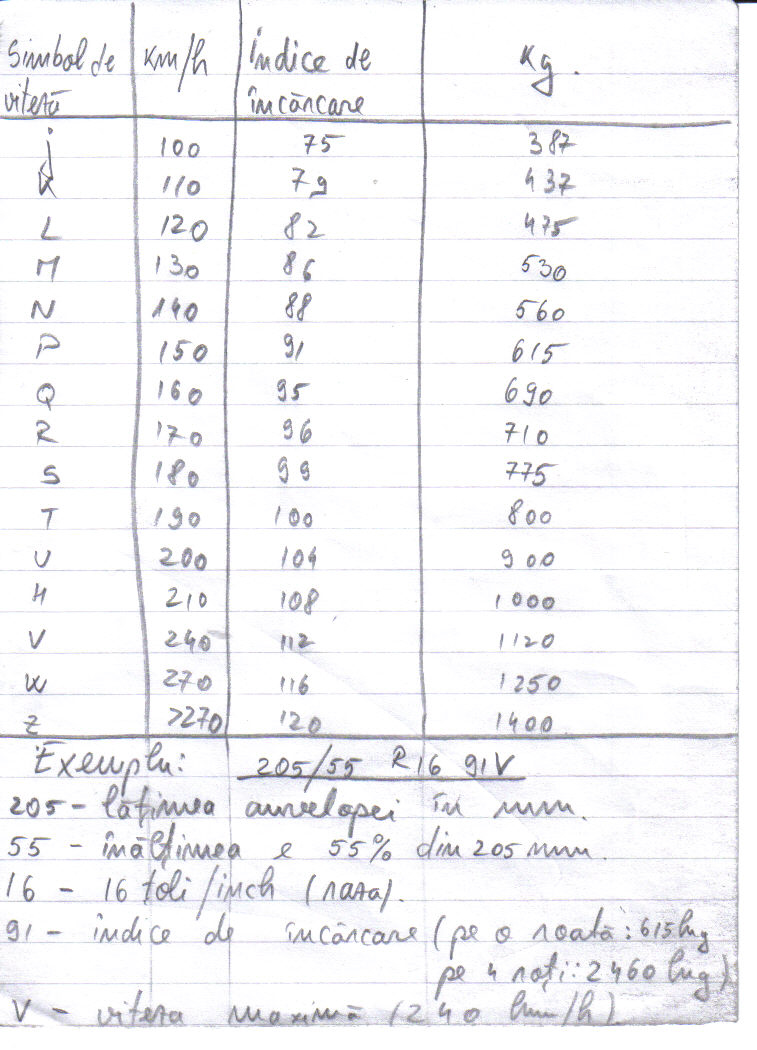 Simbol de km/h Indice de kg.
viteză încărcare
J 100 75 387
K 110 79 437
L 120 82 475
M 130 86 530
N 140 88 560
P 150 91 615
Q 160 95 690
R 170 96 710
S 180 99 775
T 190 100 800
U 200 104 900
H 210 108 1000
V 240 112 1120
W 270 116 1250
Z >270 120 1400
Exemplu: 205/55 R16 91V
205 - lățimea anvelopei în mm.
55 - înălțimea e 55% din 205 mm.
16 - 16 toli/inch (raza).
91 - indice de încărcare (pe o roată: 615 kg
pe 4 roți: 2460 kg)
V - viteza maximă (240 km/h)